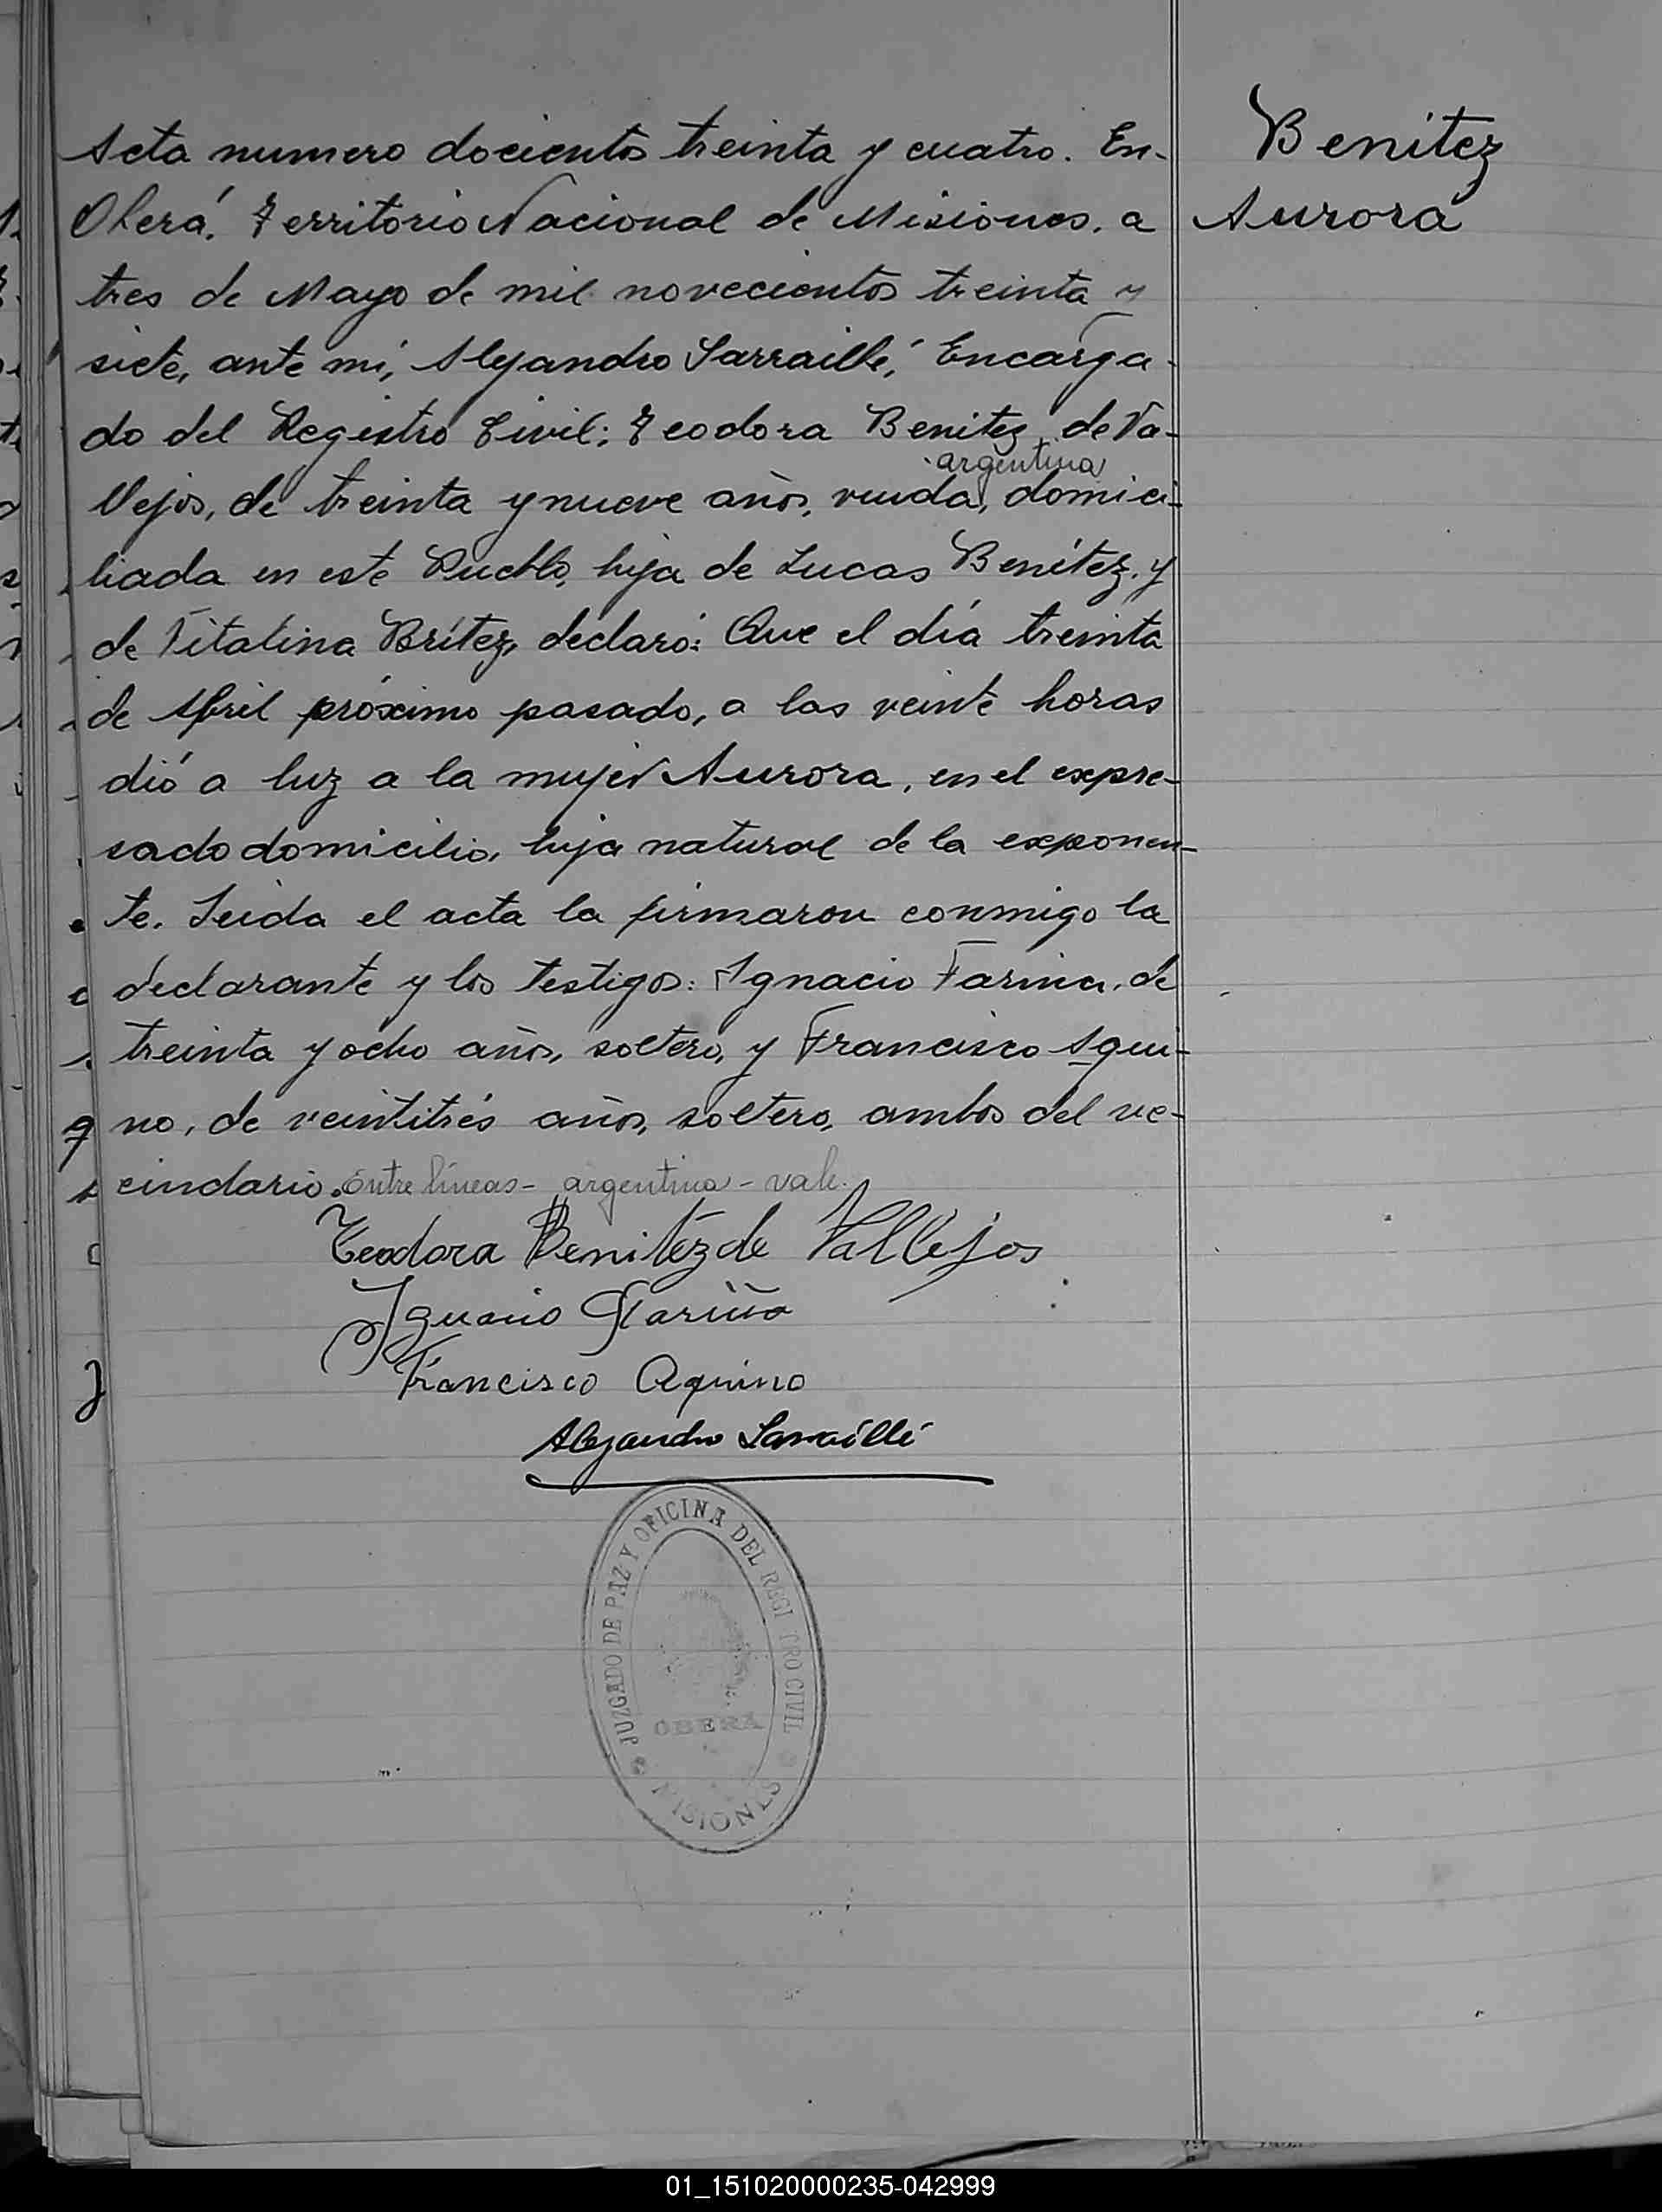 Acta numero docientos treinta y cuatro. En-
Benítez
Oberá, Territorio Nacional de Misiones, a
Aurora
tres de Mayo de mil novecientos treinta y
siete, ante mí, Alejandro Sarraillé, Encarga-
do del Registro Civil: Teodora Benítez de Va-
argentina
llejos, de treinta y nueve años, viuda, domici-
liada en este Pueblo, hija de Lucas Benítez y
de Vitalina Brítez, declaró: Que el día treinta
de Abril próximo pasado, a las veinte horas
dió a luz a la mujer Aurora, en el expre-
sado domicilio, hija natural de la exponen-
te. Leida el acta la firmaron conmigo la
declarante y los testigos: Ignacio Farina, de
treinta y ocho años, soltero, y Francisco Aqui-
no, de veintitrés años, soltero, ambos del ve-
cindario. Entre líneas - argentina - vale.
Teodora Benitéz de Vallejos
Ignacio Fariña
Francisco Aquino
Alejandro Sarraillé
JUZGADO DE PAZ Y OFICINA DEL REGI TRO CIVIL
OBERÁ
MISIONES
01_151020000235-042999